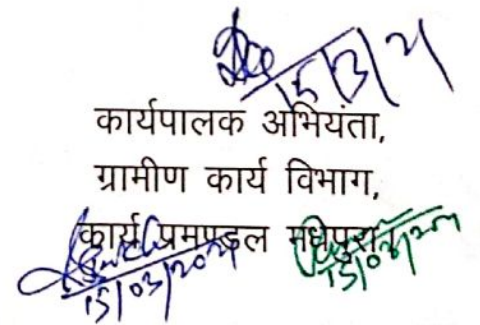 15/3/21
कार्यपालक अभियंता,
ग्रामीण कार्य विभाग,
कार्य प्रमण्डल मधेपुरा।
15/03/2021
15/03/2021